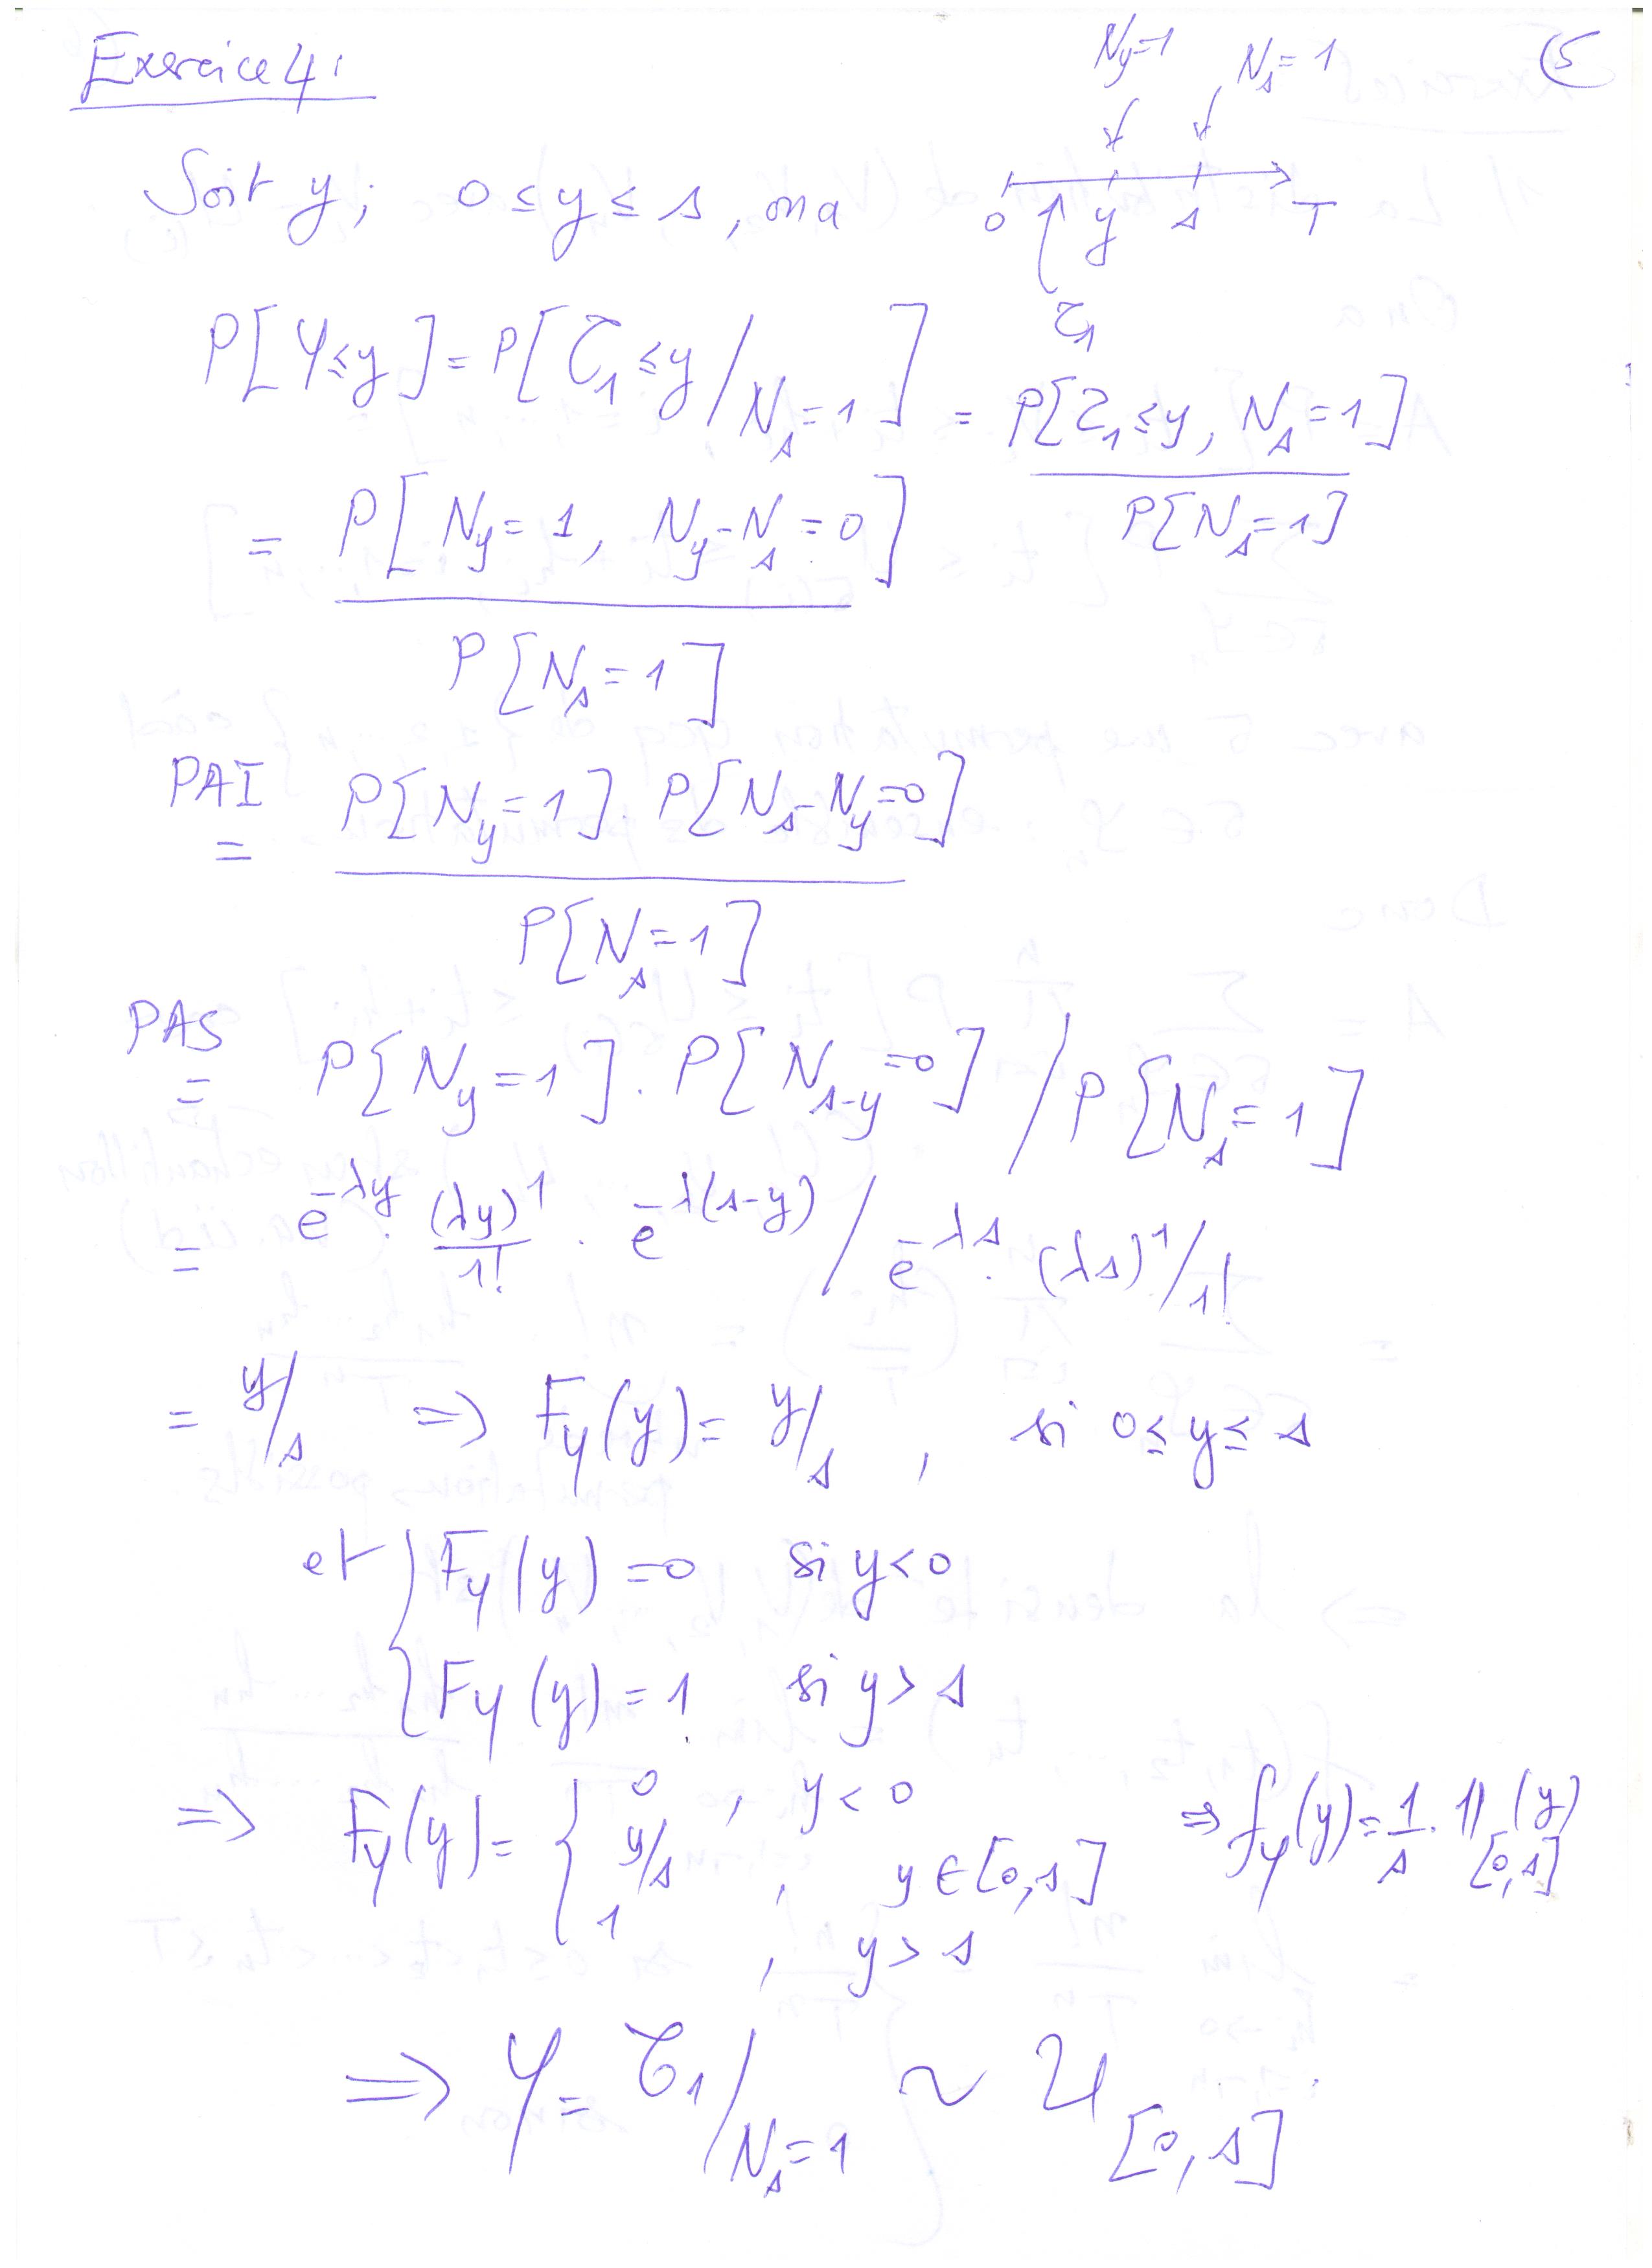 Exercice 4:
(5
N_y=1
N_s=1
Soit y; 0 ≤ y ≤ s, on a
0 y s T
τ_1
P[Y≤y] = P[τ_1 ≤ y / N_s=1] = P[τ_1≤y, N_s=1] / P[N_s=1]
= P[N_y=1, N_y-N_s=0] / P[N_s=1]
PAI = P[N_y=1]. P[N_s-N_y=0] / P[N_s=1]
PAS = P[N_y=1]. P[N_{s-y}=0] / P[N_s=1]
= e^{-λy}. (λy)^1/1! . e^{-λ(s-y)} / e^{-λs}. (λs)^1/1!
= y/s ⇒ F_Y(y) = y/s , si 0≤y≤s
et { F_Y(y) =0 si y<0
F_Y(y) = 1 si y>s
⇒ F_Y(y) = { 0 , y<0
y/s , y∈[0,s] ⇒ f_Y(y) = 1/s . 𝟙_{[0,s]}(y)
1 , y>s
⇒ Y = τ_1 / N_s=1 ~ U_{[0,s]}